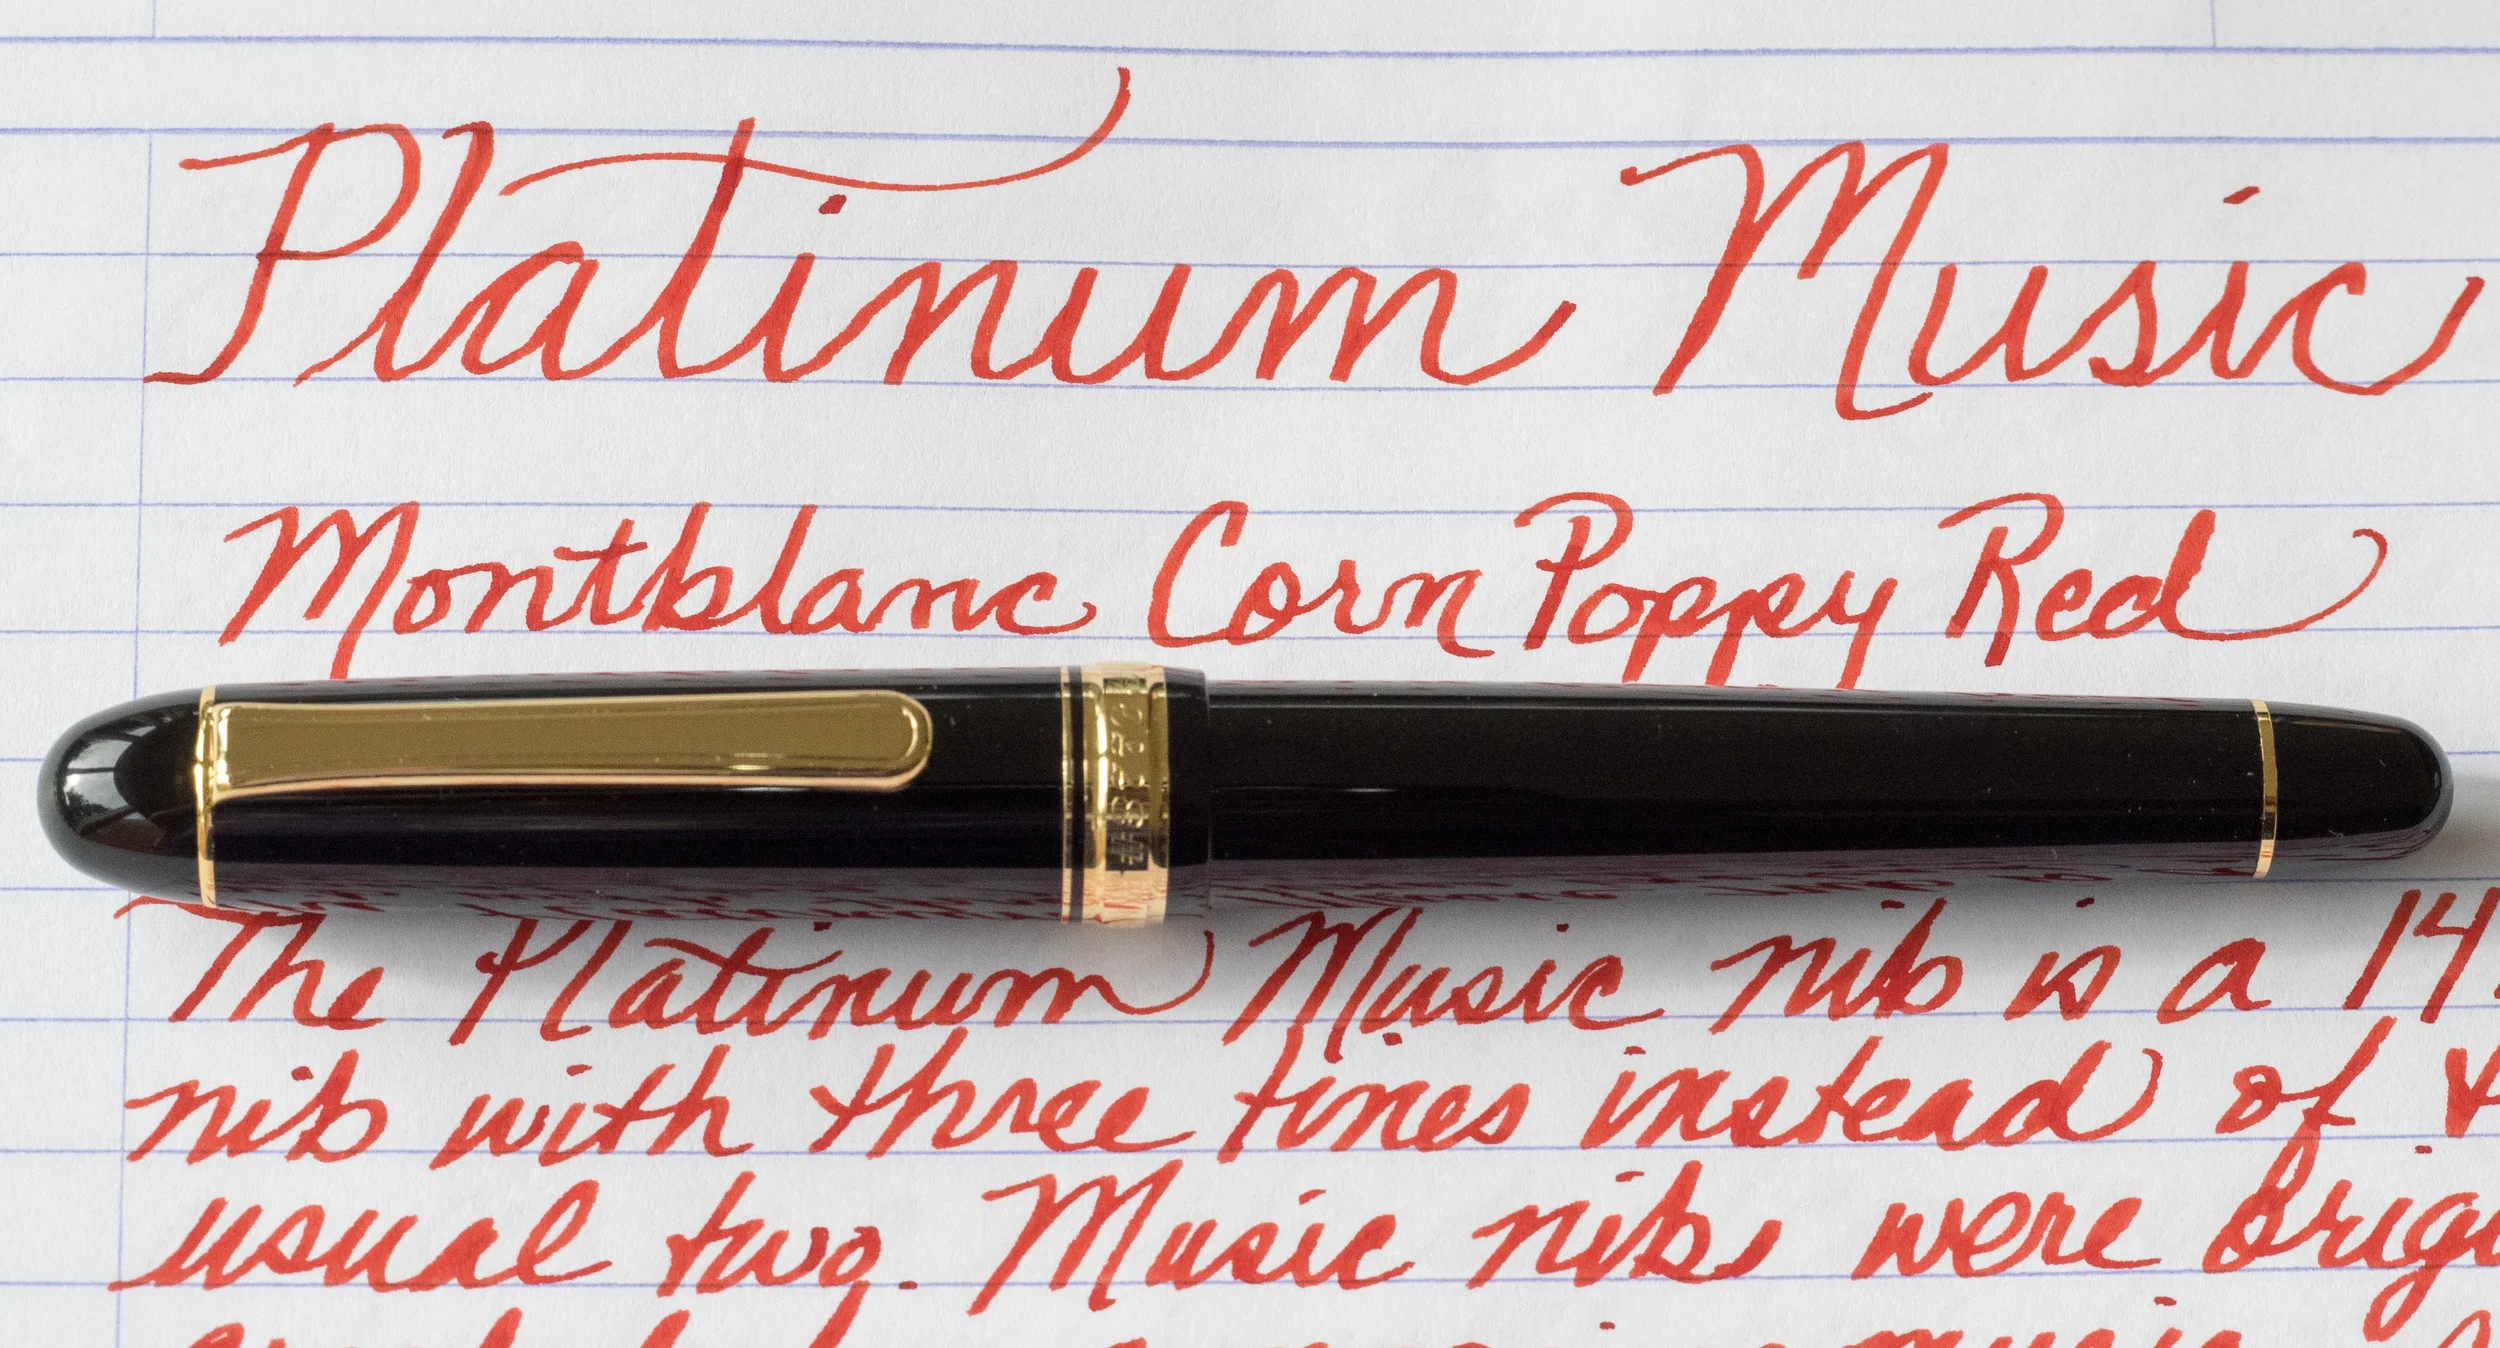 Platinum Music
Montblanc Corn Poppy Red
#3776
The Platinum Music nib is a 14
nib with three tines instead of
usual two. Music nibs were
music